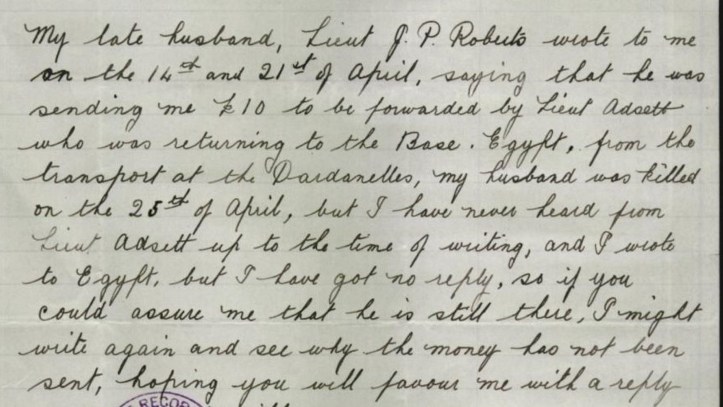 My late husband, Lieut J. P. Roberts wrote to me
on the 14th and 21st of April, saying that he was
sending me £10 to be forwarded by Lieut Adsett
who was returning to the Base. Egypt, from the
transport at the Dardanelles, my husband was killed
on the 25th of April, but I have never heard from
Lieut Adsett up to the time of writing, and I wrote
to Egypt, but I have got no reply, so if you
could assure me that he is still there, I might
write again and see why the money has not been
sent, hoping you will favour me with a reply
RECOR